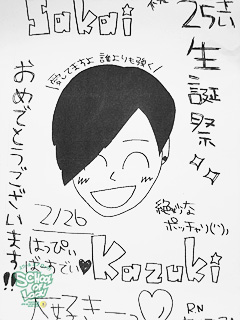 Sakai
25さい
生誕祭
愛してますよ 誰よりも強く
おめでとうございます!!
2/26
はっぴぃ
ばーすでい♥
Kazuki
絶妙な
ポッチャリ(笑)
大好きーっ♡
R.N